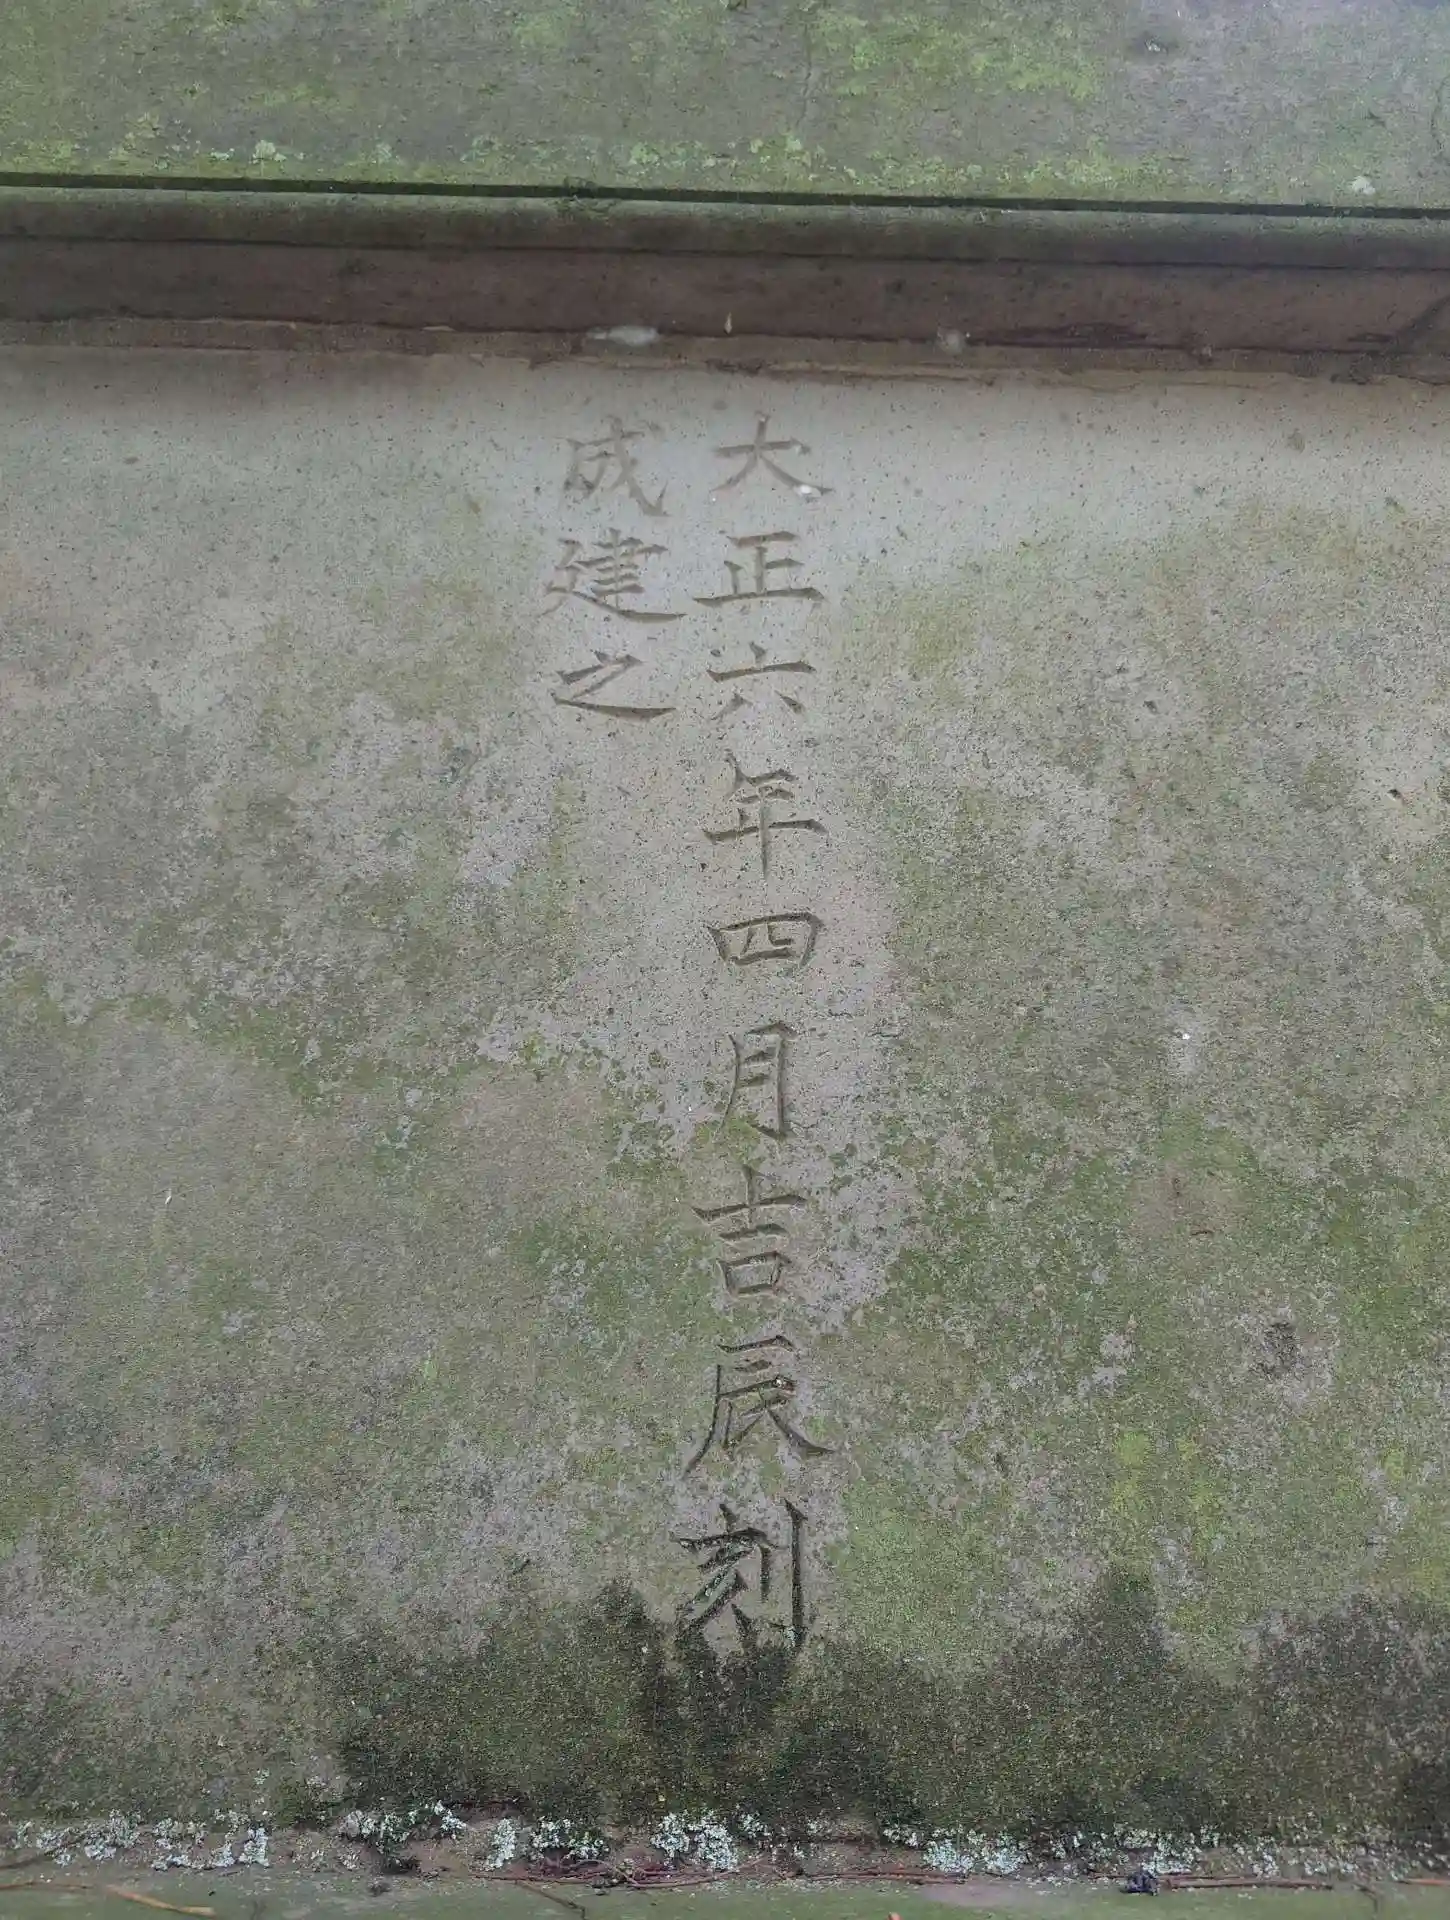 大正六年四月吉辰刻
成建之